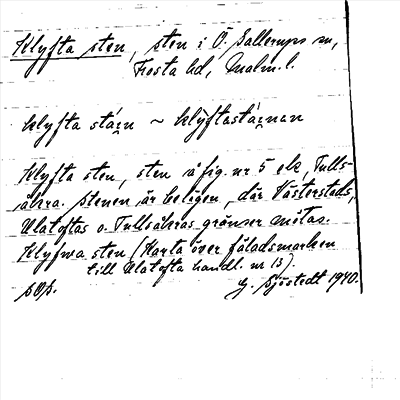 Klyfta sten, sten i Ö. Sallerups sn,
Frosta hd, Malm. l.
klyfta stä́i̯n ~ klýftastä̀i̯nan
Klyfta sten, sten å fig. nr 5 ek, Tulls-
åkra. Stenen är belägen, där Västerstads,
Ulatoftas o. Tullsåkras gränser mötas.
Klyfwa sten (Karta över fäladsmarken
till Ulatofta handl. nr 13).
sOp.
G. Sjöstedt 1940.